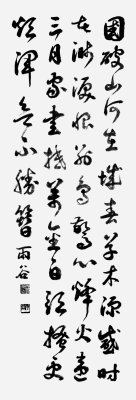 國破山河在城春草木深感時
花濺淚恨別鳥驚心烽火連
三月家書抵萬金白頭搔更
短渾欲不勝簪 雨谷